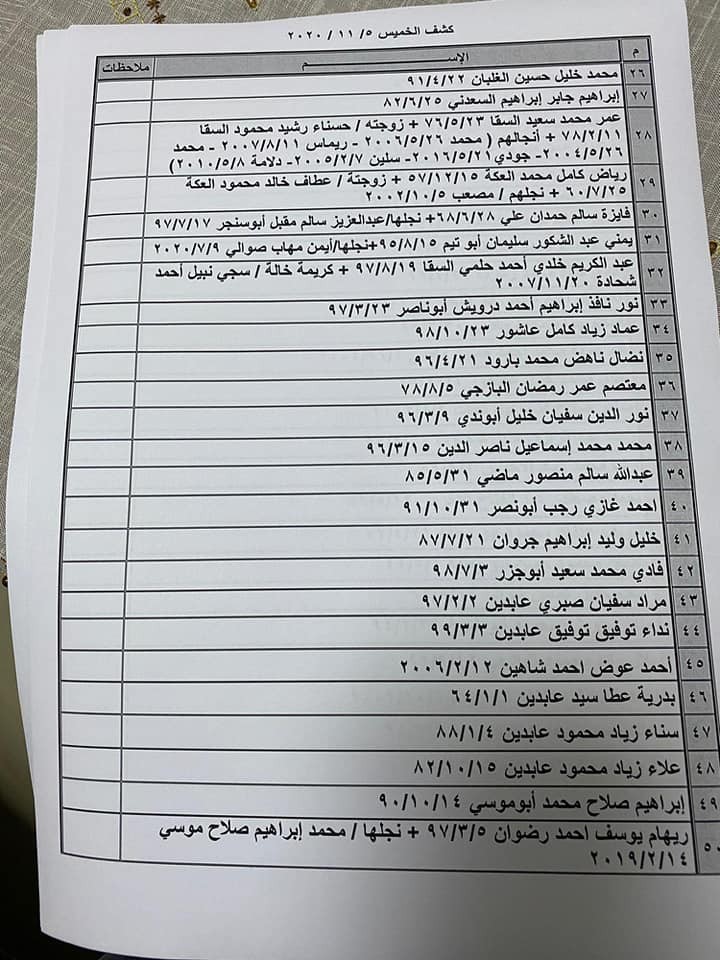 كشف الخميس ٥/ ١١/ ٢٠٢٠
م الإســـــــــم ملاحظات
٢٦ محمد خليل حسين الغلبان ٩١/٤/٢٢
٢٧ إبراهيم جابر إبراهيم السعدني ٨٢/٦/٢٥
٢٨ عمر محمد سعيد السقا ٧٦/٥/٢٣ + زوجته / حسناء رشيد محمود السقا
٧٨/٢/١١ + أنجالهم ( محمد ٢٠٠٦/٥/٢٦ - ريماس ٢٠٠٧/٨/١١ - محمد
٢٠٠٤/٥/٢٦- جودي٢٠١٦/٥/٢١- سلين ٢٠٠٥/٢/٧- دلامة ٢٠١٠/٥/٨)
٢٩ رياض كامل محمد العكة ٥٧/١٢/١٥ + زوجتة / عطاف خالد محمود العكة
٦٠/٧/٢٥ + نجلهم / مصعب ٢٠٠٢/١٠/٥
٣٠ فايزة سالم حمدان علي ٦٨/٦/٢٨+ نجلها/عبدالعزيز سالم مقبل أبوسنجر ٩٧/٧/١٧
٣١ يمني عبد الشكور سليمان أبو تيم ٩٥/٨/١٥+نجلها/أيمن مهاب صوالي ٢٠٢٠/٧/٩
٣٢ عبد الكريم خلدي أحمد حلمي السقا ٩٧/٨/١٩ + كريمة خالة / سجي نبيل أحمد
شحادة ٢٠٠٧/١١/٢٠
٣٣ نور نافذ إبراهيم أحمد درويش أبوناصر ٩٧/٣/٢٣
٣٤ عماد زياد كامل عاشور ٩٨/١٠/٢٣
٣٥ نضال ناهض محمد بارود ٩٦/٤/٢١
٣٦ معتصم عمر رمضان اليازجي ٧٨/٨/٥
٣٧ نور الدين سفيان خليل أبوندي ٩٦/٣/٩
٣٨ محمد محمد إسماعيل ناصر الدين ٩٦/٣/١٥
٣٩ عبدالله سالم منصور ماضي ٨٥/٥/٣١
٤٠ احمد غازي رجب أبونصر ٩١/١٠/٣١
٤١ خليل وليد إبراهيم جروان ٨٧/٧/٢١
٤٢ فادي محمد سعيد أبوجزر ٩٨/٧/٣
٤٣ مراد سفيان صبري عابدين ٩٧/٢/٢
٤٤ نداء توفيق توفيق عابدين ٩٩/٣/٣
٤٥ أحمد عوض احمد شاهين ٢٠٠٦/٢/١٢
٤٦ بدرية عطا سيد عابدين ٦٤/١/١
٤٧ سناء زياد محمود عابدين ٨٨/١/٤
٤٨ علاء زياد محمود عابدين ٨٢/١٠/١٥
٤٩ إبراهيم صلاح محمد أبوموسي ٩٠/١٠/١٤
٥٠ ريهام يوسف احمد رضوان ٩٧/٣/٥ + نجلها / محمد إبراهيم صلاح موسي
٢٠١٩/٢/١٤